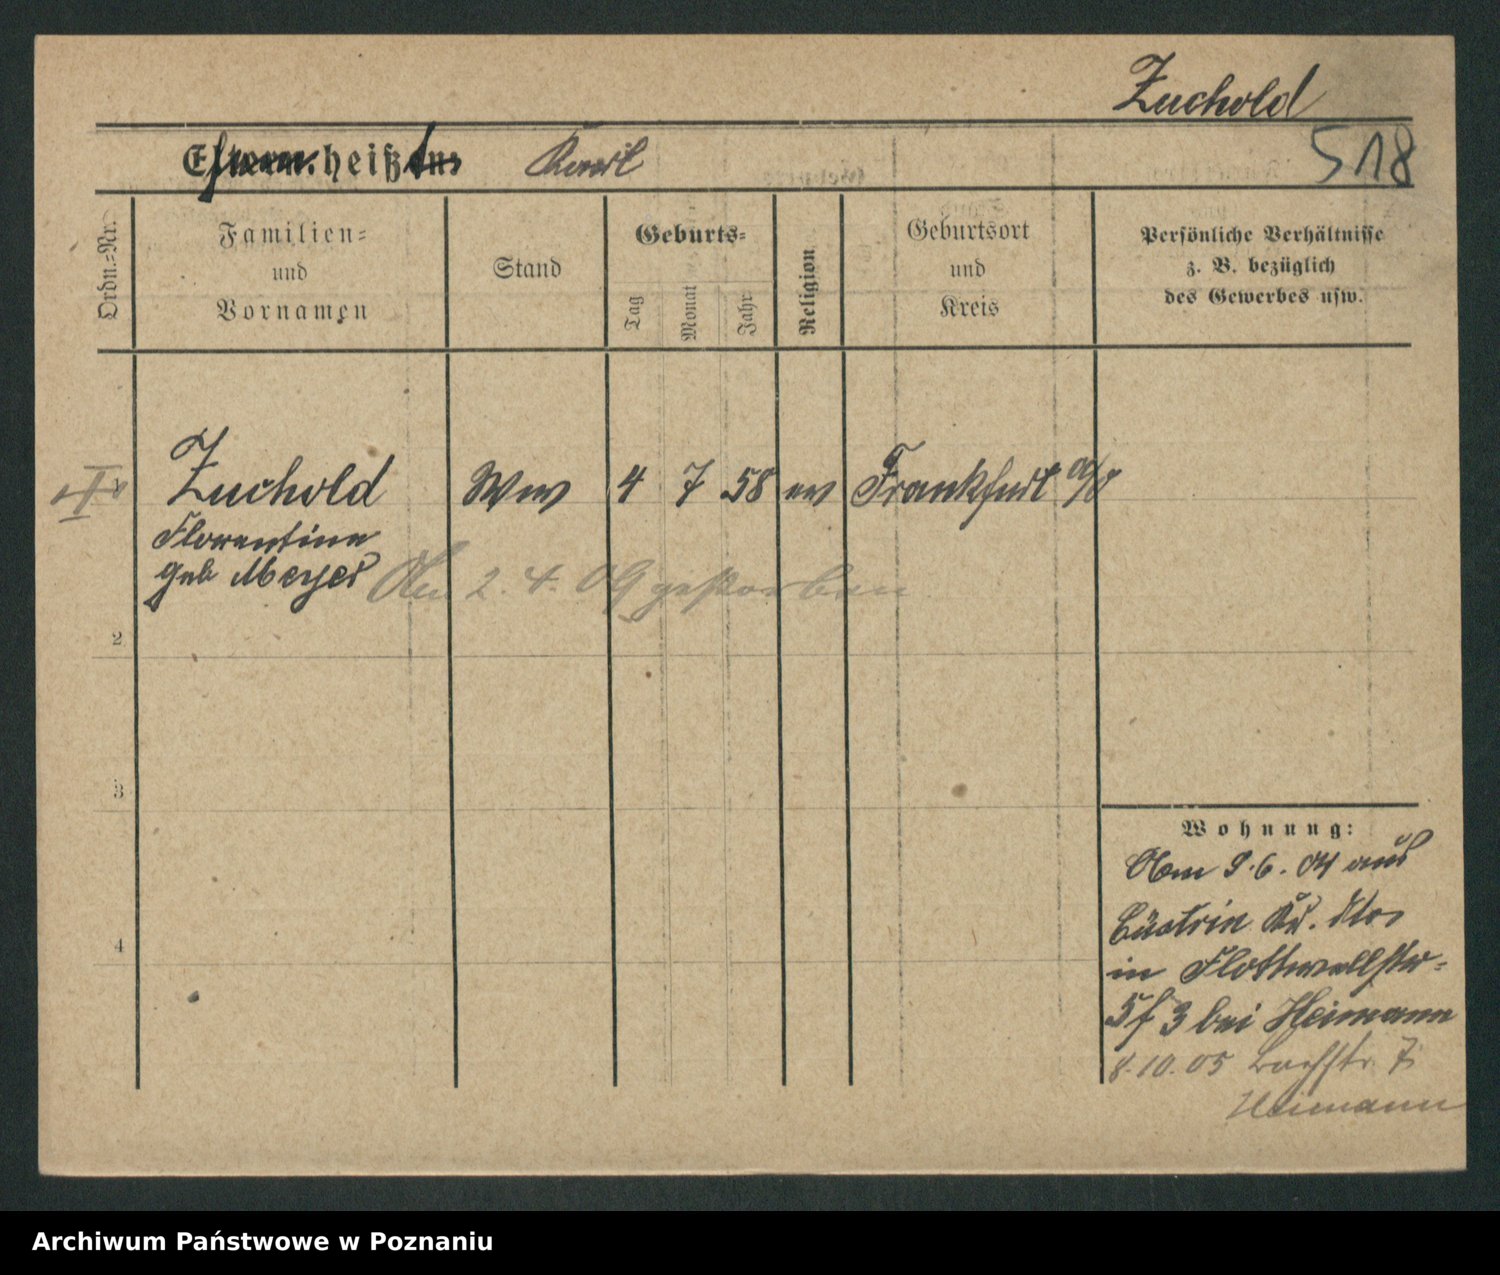 Zuchold
518
Eltern heißen: Karl
Ordn.-Nr.
Familien-
und
Vornamen
Stand
Geburts-
Tag
Monat
Jahr
Religion
Geburtsort
und
Kreis
Persönliche Verhältnisse
z. B. bezüglich
des Gewerbes usw.
Zuchold Ww 4 7 58 ev Frankfurt a/O
Florentine
geb Meyer
Am 2. 4. 09 gestorben
2
3
4
Wohnung:
Am 9.6.04 aus
Cüstrin
in Flottwellstr-
5f 3 bei Heimann
8.10.05 Bachstr. 7
Heimann
Archiwum Państwowe w Poznaniu